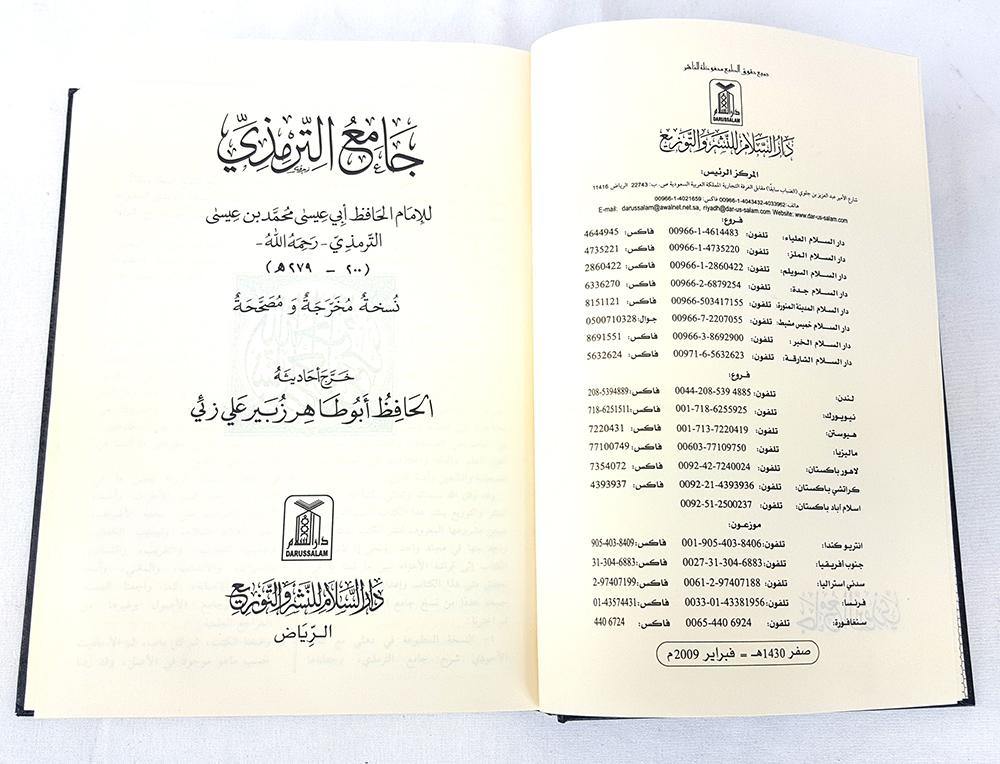 جَامِعُ التِّرمِذيِّ
للإمَام الحَافظ أبي عيسىٰ محُمَّد بن عِيسىٰ
الترمذيّ - رَحِمَهُ اللهُ -
(٢٠٠ - ٢٧٩ هـ)
نُسخَةٌ مُخَرَّجَةٌ وَ مُصَحَّحَةٌ
خَرَّج أحَاديثَهُ
الحَافِظُ أبُو طَاهِر زُبَير عَلي زئي
دار السلام
DARUSSALAM
دَارُ السَّلَامِ لِلنَّشْرِ وَالتَّوْزِيعِ
الريَاض
جميع حقوق الطبع محفوظة للناشر
دار السلام
DARUSSALAM
دَارُ السَّلَامِ لِلنَّشْرِ وَالتَّوْزِيعِ
المركز الرئيس:
شارع الأمير عبد العزيز بن جلوي (الضباب سابقًا) مقابل الغرفة التجارية المملكة العربية السعودية ص. ب: 22743 الرياض 11416
هاتف: 4033962-4043432-1-00966 فاكس: 4021659-1-00966
E-mail: darussalam@awalnet.net.sa, riyadh@dar-us-salam.com Website: www.dar-us-salam.com
فروع:
دار السلام العلياء: تلفون: 00966-1-4614483 فاكس: 4644945
دار السلام الملز: تلفون: 00966-1-4735220 فاكس: 4735221
دار السلام السويلم: تلفون: 00966-1-2860422 فاكس: 2860422
دار السلام جدة: تلفون: 00966-2-6879254 فاكس: 6336270
دار السلام المدينة المنورة: تلفون: 00966-503417155 فاكس: 8151121
دار السلام خميس مشيط: تلفون: 00966-7-2207055 جوال: 0500710328
دار السلام الخبر: تلفون: 00966-3-8692900 فاكس: 8691551
دار السلام الشارقة: تلفون: 00971-6-5632623 فاكس: 5632624
فروع:
لندن: تلفون: 0044-208-539 4885 فاكس: 208-5394889
نيويورك: تلفون: 001-718-6255925 فاكس: 718-6251511
هيوستن: تلفون: 001-713-7220419 فاكس: 7220431
ماليزيا: تلفون: 00603-77109750 فاكس: 77100749
لاهور باكستان: تلفون: 0092-42-7240024 فاكس: 7354072
كراتشي باكستان: تلفون: 0092-21-4393936 فاكس: 4393937
اسلام آباد باكستان: تلفون: 0092-51-2500237
موزعون:
انتريو كندا: تلفون: 001-905-403-8406 فاكس: 905-403-8409
جنوب افريقيا: تلفون: 0027-31-304-6883 فاكس: 31-304-6883
سدني استراليا: تلفون: 0061-2-97407188 فاكس: 2-97407199
فرنسا: تلفون: 0033-01-43381956 فاكس: 01-43574431
سنغافورة: تلفون: 0065-440 6924 فاكس: 440 6924
صفر 1430هـ = فبراير 2009م